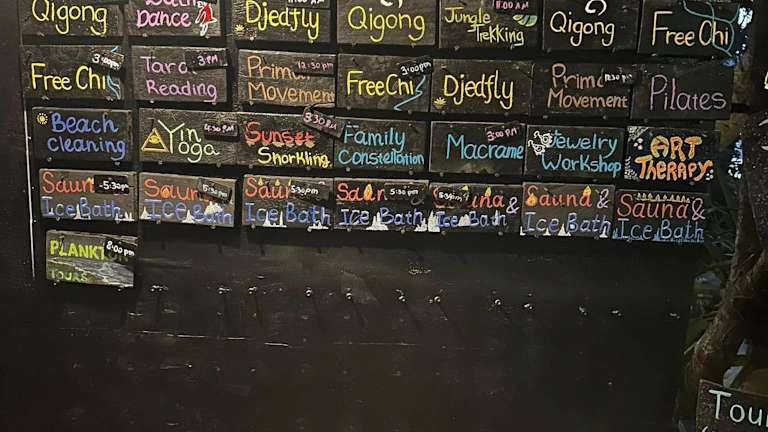 Qigong
Dance
Djedfly
Qigong
11:00 AM
Jungle
Trekking
Qigong
Free Chi
Free Chi
3:00pm
Taro
3PM
Reading
Prim
12:30pm
Movement
Free Chi
3:00pm
Djedfly
Prim
Movement
Pilates
Beach
Cleaning
Yin
4:30PM
Yoga
Sunset
3:30PM
Snorkling
Family
Constellation
3:00PM
Macrame
Jewelry
Workshop
ART
THERAPY
Saun
5:30pm
Ice Bath
Sauna
5:30pm
Ice Bath
Sau
5:30pm
Ice Bath
Saun
5:30pm
Ice Bath
5:30pm
una &
Ice Bath
Sauna &
Ice Bath
Sauna &
Ice Bath
PLANKTON
8:00pm
TOURS
Tour